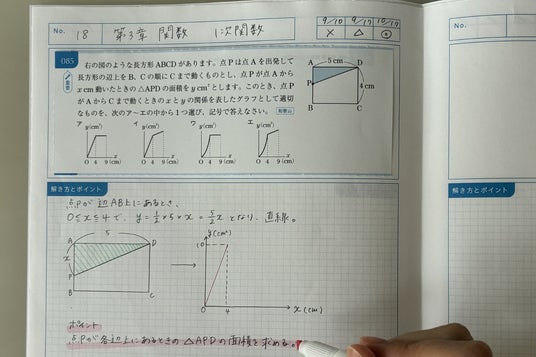 No. 18 第3章 関数 1次関数
9/10 9/17 10/17
× △ ◎
085
重要
右の図のような長方形ABCDがあります。点Pは点Aを出発して
長方形の辺上をB、Cの順にCまで動くものとし、点Pが点Aから
x cm動いたときの△APDの面積をy cm²とします。このとき、点P
がAからCまで動くときのxとyの関係を表したグラフとして適切
なものを、次のア〜エの中から1つ選び、記号で答えなさい。
A 5cm D
P 4cm
B C
ア y(cm²) イ y(cm²) ウ y(cm²) エ y(cm²)
x x x x
O 4 9 (cm) O 4 9 (cm) O 4 9 (cm) O 4 9 (cm)
解き方とポイント
点Pが辺AB上にあるとき、
0≦x≦4で、y=1/2×5×x=5/2xとなり、直線。
5
A D
x
P
B C
y(cm²)
10
O 4 x(cm)
ポイント
点Pが各辺上にあるときの△APDの面積を求める。
No.
解き方とポイント